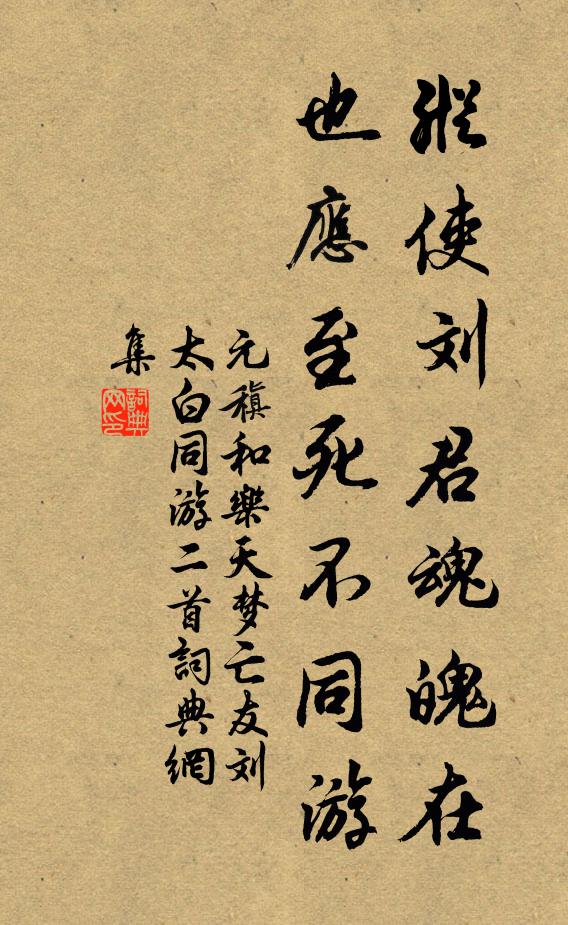 縱使刘君魂魄在
也應至死不同游
元稹和樂天梦亡友刘
太白同游二首詞典網
集
詞典
网印